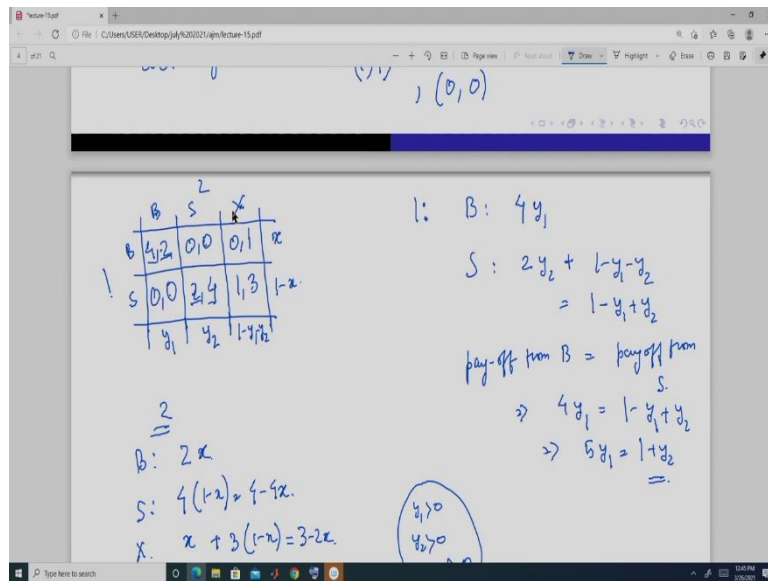 *lecture-15.pdf
File | C:/Users/USER/Desktop/july%202021/ajm/lecture-15.pdf
4 of 21
Page view
Read aloud
Draw
Highlight
Erase
(1,1)
, (0,0)
2
B S X
B 4,2 0,0 0,1 x
1 S 0,0 2,4 1,3 1-x
y₁ y₂ 1-y₁-y₂
1: B: 4y₁
S: 2y₂ + 1-y₁-y₂
= 1-y₁+y₂
pay-off from B = payoff from
S.
⇒ 4y₁ = 1-y₁+y₂
⇒ 5y₁ = 1+y₂
2
B: 2x
S: 4(1-x) = 4-4x.
X. x + 3(1-x) = 3-2x.
y₁>0
y₂>0
Type here to search
12:45 PM
3/26/2021